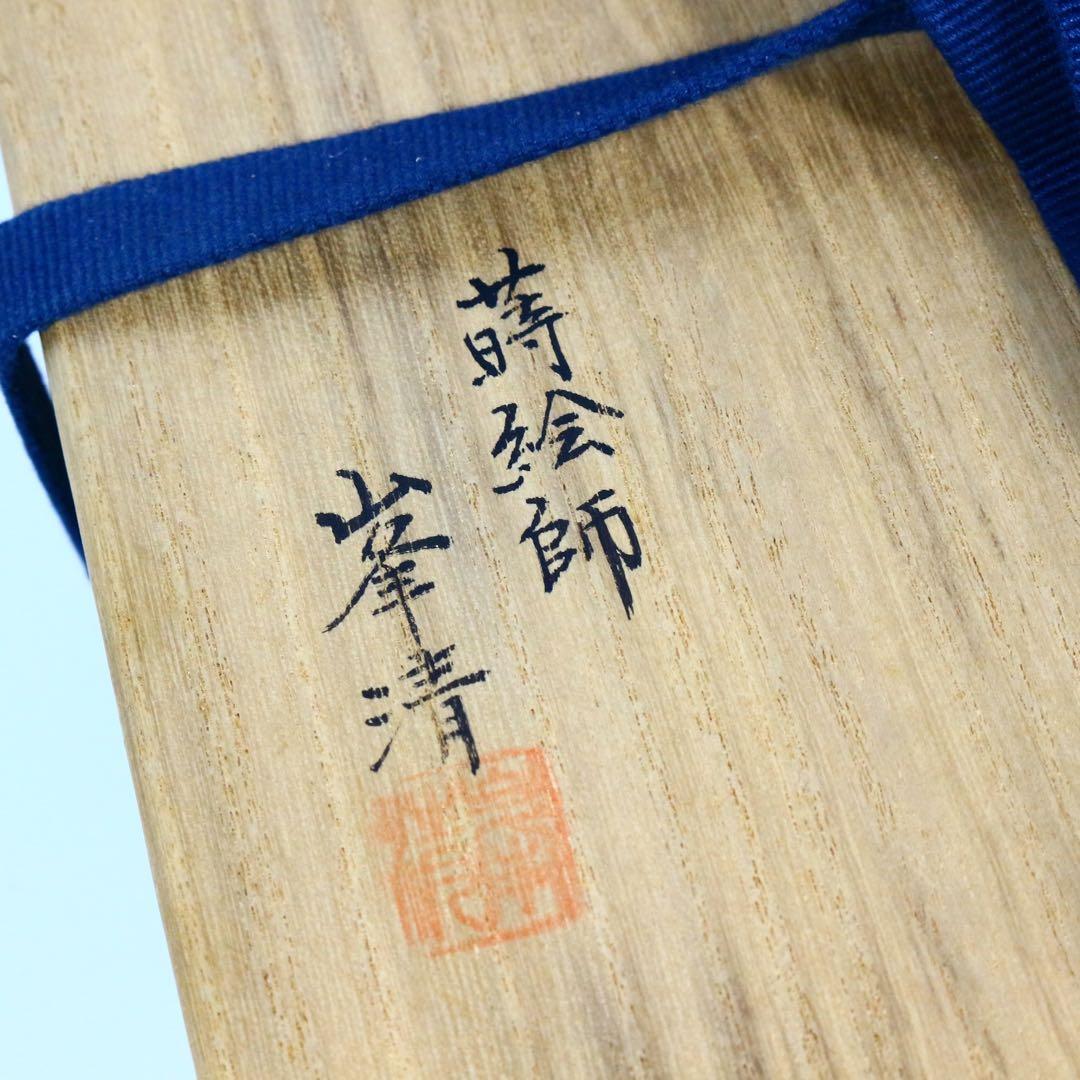 蒔絵師
峯清